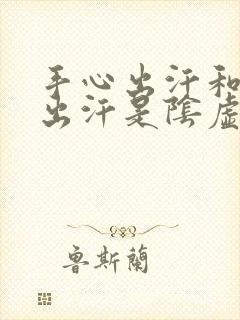 手心出汗和
出汗是陰虛
魯斯蘭